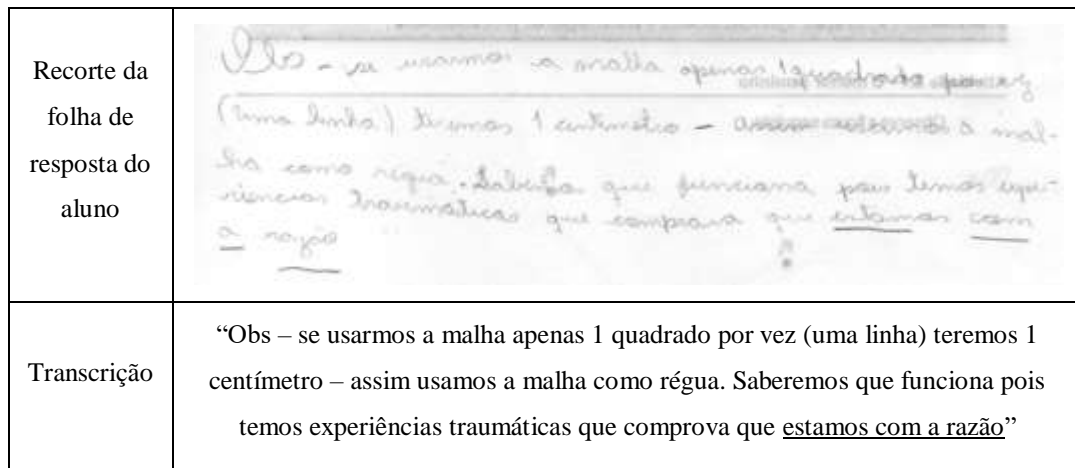 Recorte da
folha de
resposta do
aluno
Obs - se usarmos a malha apenas 1 quadrado por vez
(uma linha) teremos 1 centimetro - assim a mal-
ha como regua. que funciona pois temos expe-
riencias traumáticas que comprova que estamos com
a razão
Transcrição
“Obs – se usarmos a malha apenas 1 quadrado por vez (uma linha) teremos 1
centímetro – assim usamos a malha como régua. Saberemos que funciona pois
temos experiências traumáticas que comprova que estamos com a razão”